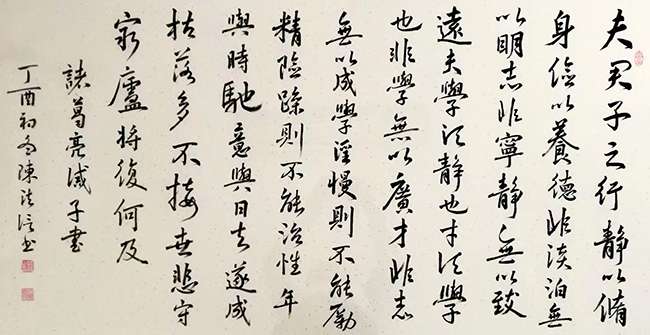 夫君子之行靜以脩
身儉以養德非淡泊無
以明志非寧靜無以致
遠夫學須靜也才須學
也非學無以廣才非志
無以成學淫慢則不能勵
精險躁則不能治性年
與時馳意與日去遂成
枯落多不接世悲守
窮廬將復何及
諸葛亮誡子書
丁酉初冬陳法信书